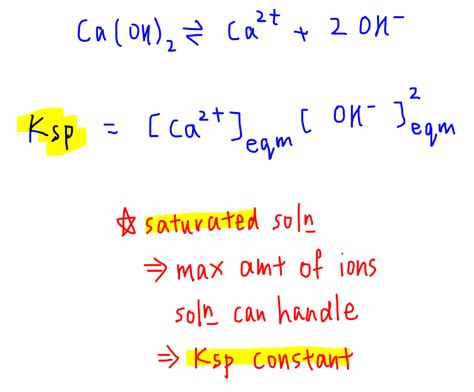 Ca(OH)₂ ⇌ Ca²⁺ + 2 OH⁻
Ksp = [Ca²⁺]eqm [OH⁻]²eqm
☆ saturated soln
⇒ max amt of ions
soln can handle
⇒ Ksp constant